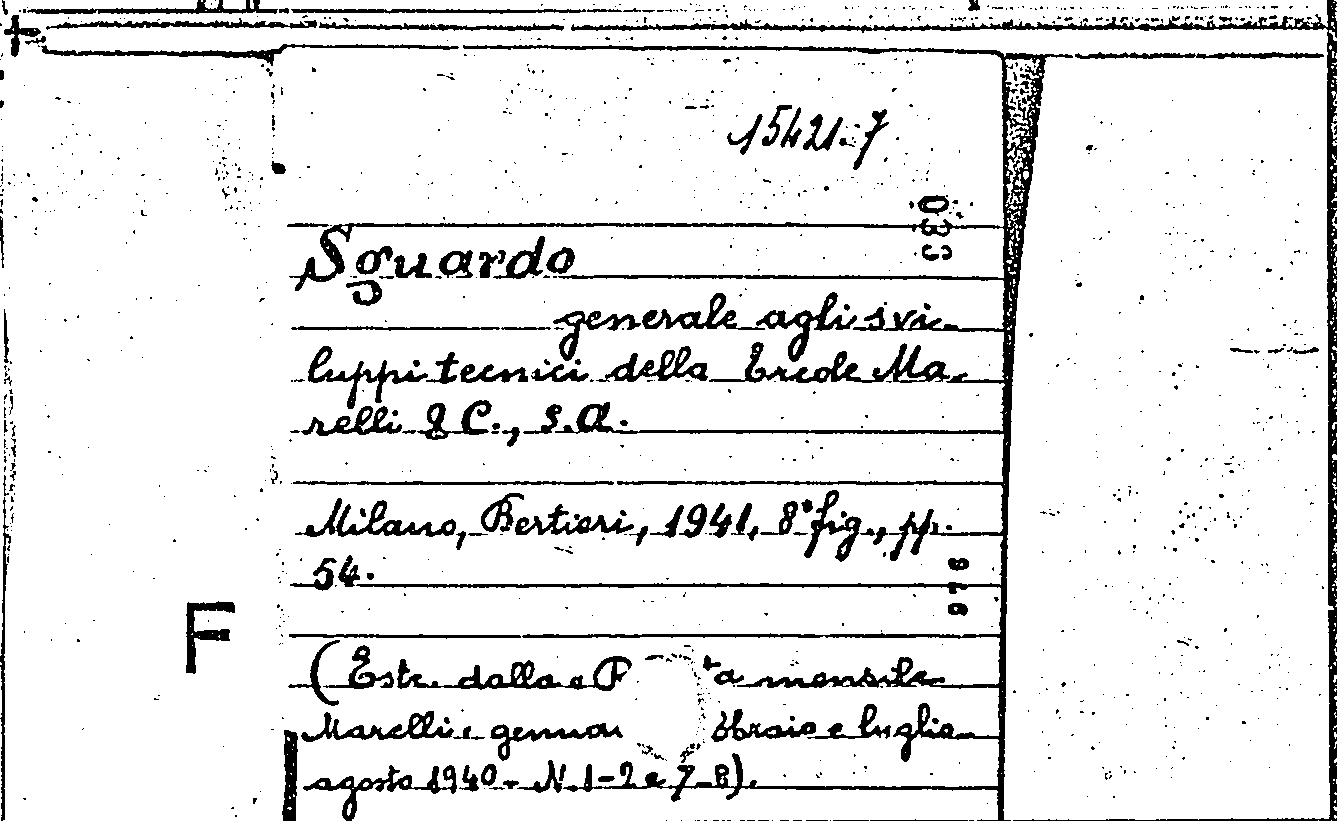 15421.7
033
Sguardo
generale agli svi-
luppi tecnici della Ercole Ma-
relli & C., s.a.
Milano, Bertieri, 1941, 8° fig., pp.
54.
F
(Estr. dalla « R ta mensile
Marelli», genna braio e luglio-
agosto 1940 - N. 1-2 e 7-8).